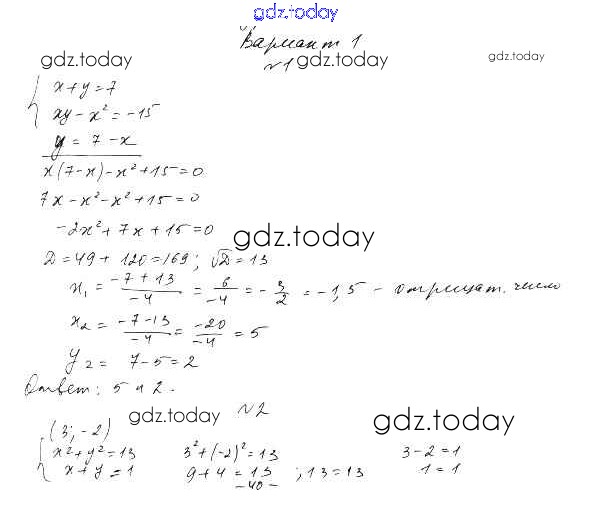 gdz.today
Вариант 1
gdz.today №1 gdz.today gdz.today
x+y=7
xy-x²=-15
y=7-x
x(7-x)-x²+15=0
7x-x²-x²+15=0
-2x²+7x+15=0
gdz.today
D=49+120=169; √D=13
x₁=(-7+13)/-4=6/-4=-3/2=-1,5 - отрицат. число
x₂=(-7-13)/-4=-20/-4=5
y₂=7-5=2
Ответ: 5 и 2.
gdz.today №2 gdz.today
(3;-2)
x²+y²=13 3²+(-2)²=13 3-2=1
x+y=1 9+4=13; 13=13 1=1
-40-